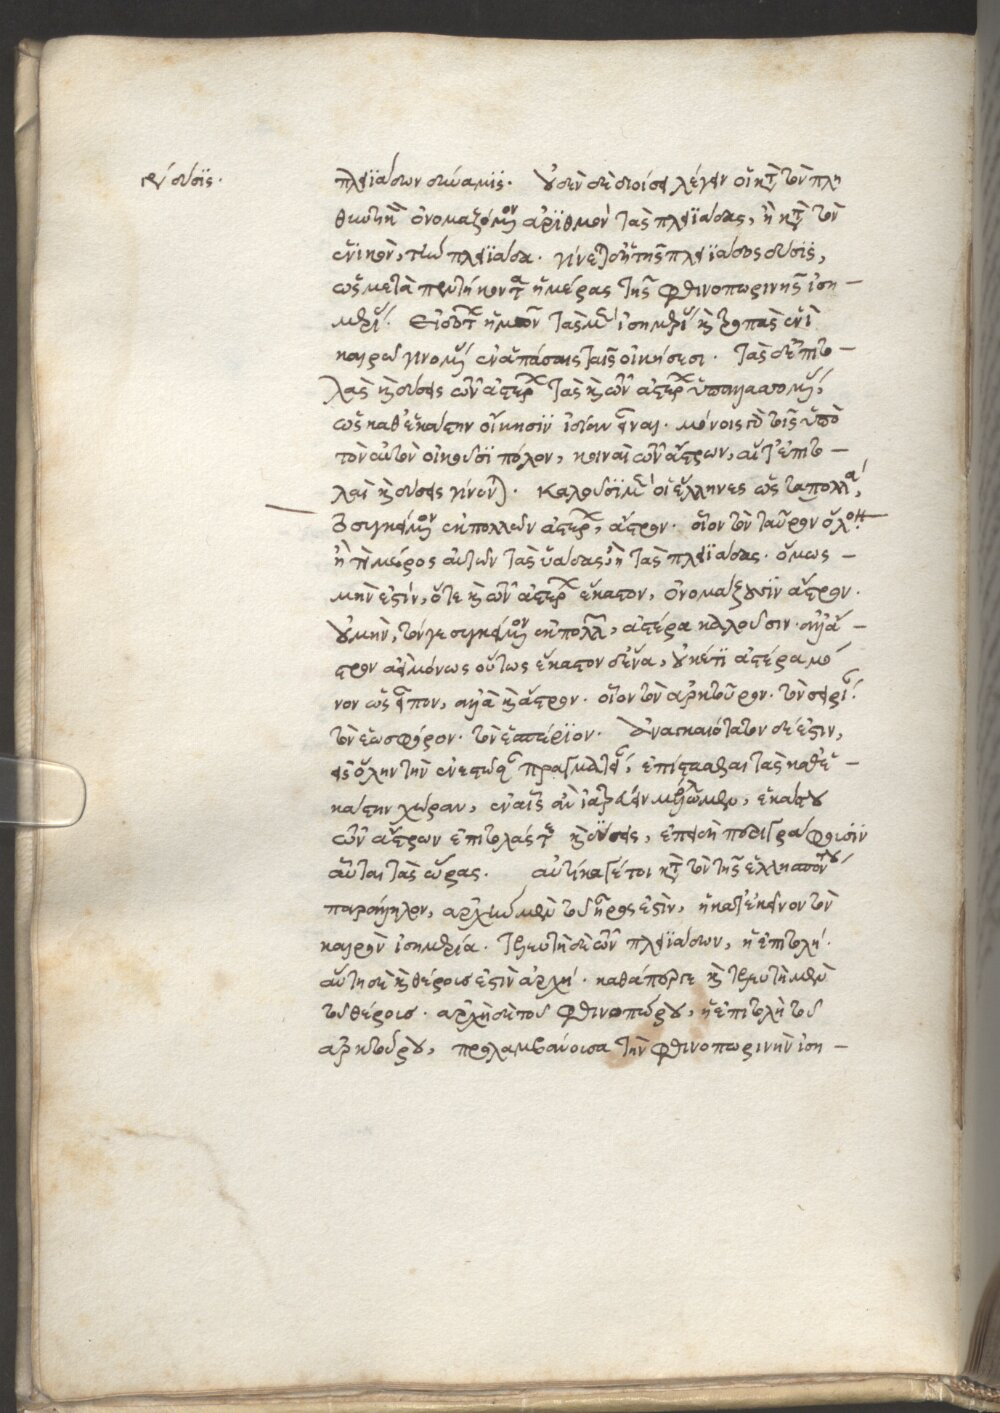 πλειάδων δύσις.
πλειάδων δυνάμις. οὐδὲν δὲ διοίσει λέγειν ἢ κατὰ τὸν πλη
θυντικὸν ὀνομαζόμενον ἀριθμὸν τὰς πλειάδας, ἢ κατὰ τὸν
ἑνικὸν, τὴν πλειάδα. γίνεται δ' ἡ τῆς πλειάδος δύσις,
ὡς μετὰ πεντήκοντα ἡμέρας τῆς φθινοπωρινῆς ἰση –
μερίας. εἰδότων ἡμῶν τὰς μὲν ἰσημερίας καὶ τροπὰς ἑνὶ
καιρῷ γινομένας ἐν ἁπάσαις ταῖς οἰκήσεσι. τὰς δὲ ἐπιτο –
λὰς καὶ δύσεις τῶν ἀστέρων
ὡς καθ' ἑκάστην οἴκησιν ἰδίαν εἶναι. μόνοις τοῖς ὑπὸ
τὸν αὐτὸν οἰκοῦσι πόλον, κοιναὶ τῶν ἄστρων, αἵ τ' ἐπιτο –
λαὶ καὶ δύσεις γίνονται. καλοῦσι μὲν οἱ ἕλληνες ὡς ταπολλὰ,
τὸ συγκείμενον ἐκ πολλῶν ἀστέρων, ἄστρον. οἷον τὸν ταῦρον ὅλον
ἢ τὸ μέρος αὐτῶν τὰς ὑάδας, ἢ τὰς πλειάδας. ὅμως –
μὴν ἐστίν, ὅτε καὶ τῶν ἀστέρων ἕκαστον, ὀνομάζουσιν ἄστρον.
οὐ μὴν, τόγε συγκείμενον ἐκ πολλῶν, ἀστέρα καλοῦσιν. ἀλλ' ἄ –
στρον ἀεὶ μόνως οὕτως ἕκαστον δ' ἕνα, οὐκέτι ἀστέρα μό
νον ὡς εἶπον, ἀλλὰ καὶ ἄστρον. οἷον τὸν ἀρκτοῦρον. τὸν σείριον.
τὸν ἑωσφόρον. τὸν ἑσπέριον. ἀναγκαιότατον δέ ἐστιν,
εἰς ὅλην τὴν ἐνεστῶσαν πραγματείαν, ἐπίστασθαι τὰς καθ' ἑ –
κάστην χώραν, ἐν αἷς ἂν ἰατρεύειν μέλλωμεν, ἑκάστου
τῶν ἄστρων ἐπιτολάς τε καὶ δύσεις, ἐπειδὴ περιγράφουσιν
αὗται τὰς ὥρας. αὐτίκα γέτοι κατὰ τὸν τῆς ἑλλησπόντου
παράλληλον, ἀρχὴ μὲν τοῦ ἦρος ἐστὶν, ἡ κατ' ἐκεῖνον τὸν
καιρὸν ἰσημερία. τελευτὴ δὲ τῶν πλειάδων, ἡ ἐπιτολή.
αὕτη δὲ καὶ θέρους ἐστὶν ἀρχή. καθάπερ γε καὶ τελευτὴ μὲν
τοῦ θέρους. ἀρχὴ δὲ τοῦ φθινοπώρου, ἡ ἐπιτολὴ τοῦ
ἀρκτούρου, προλαμβάνουσα τὴν φθινοπωρινὴν ἰση –